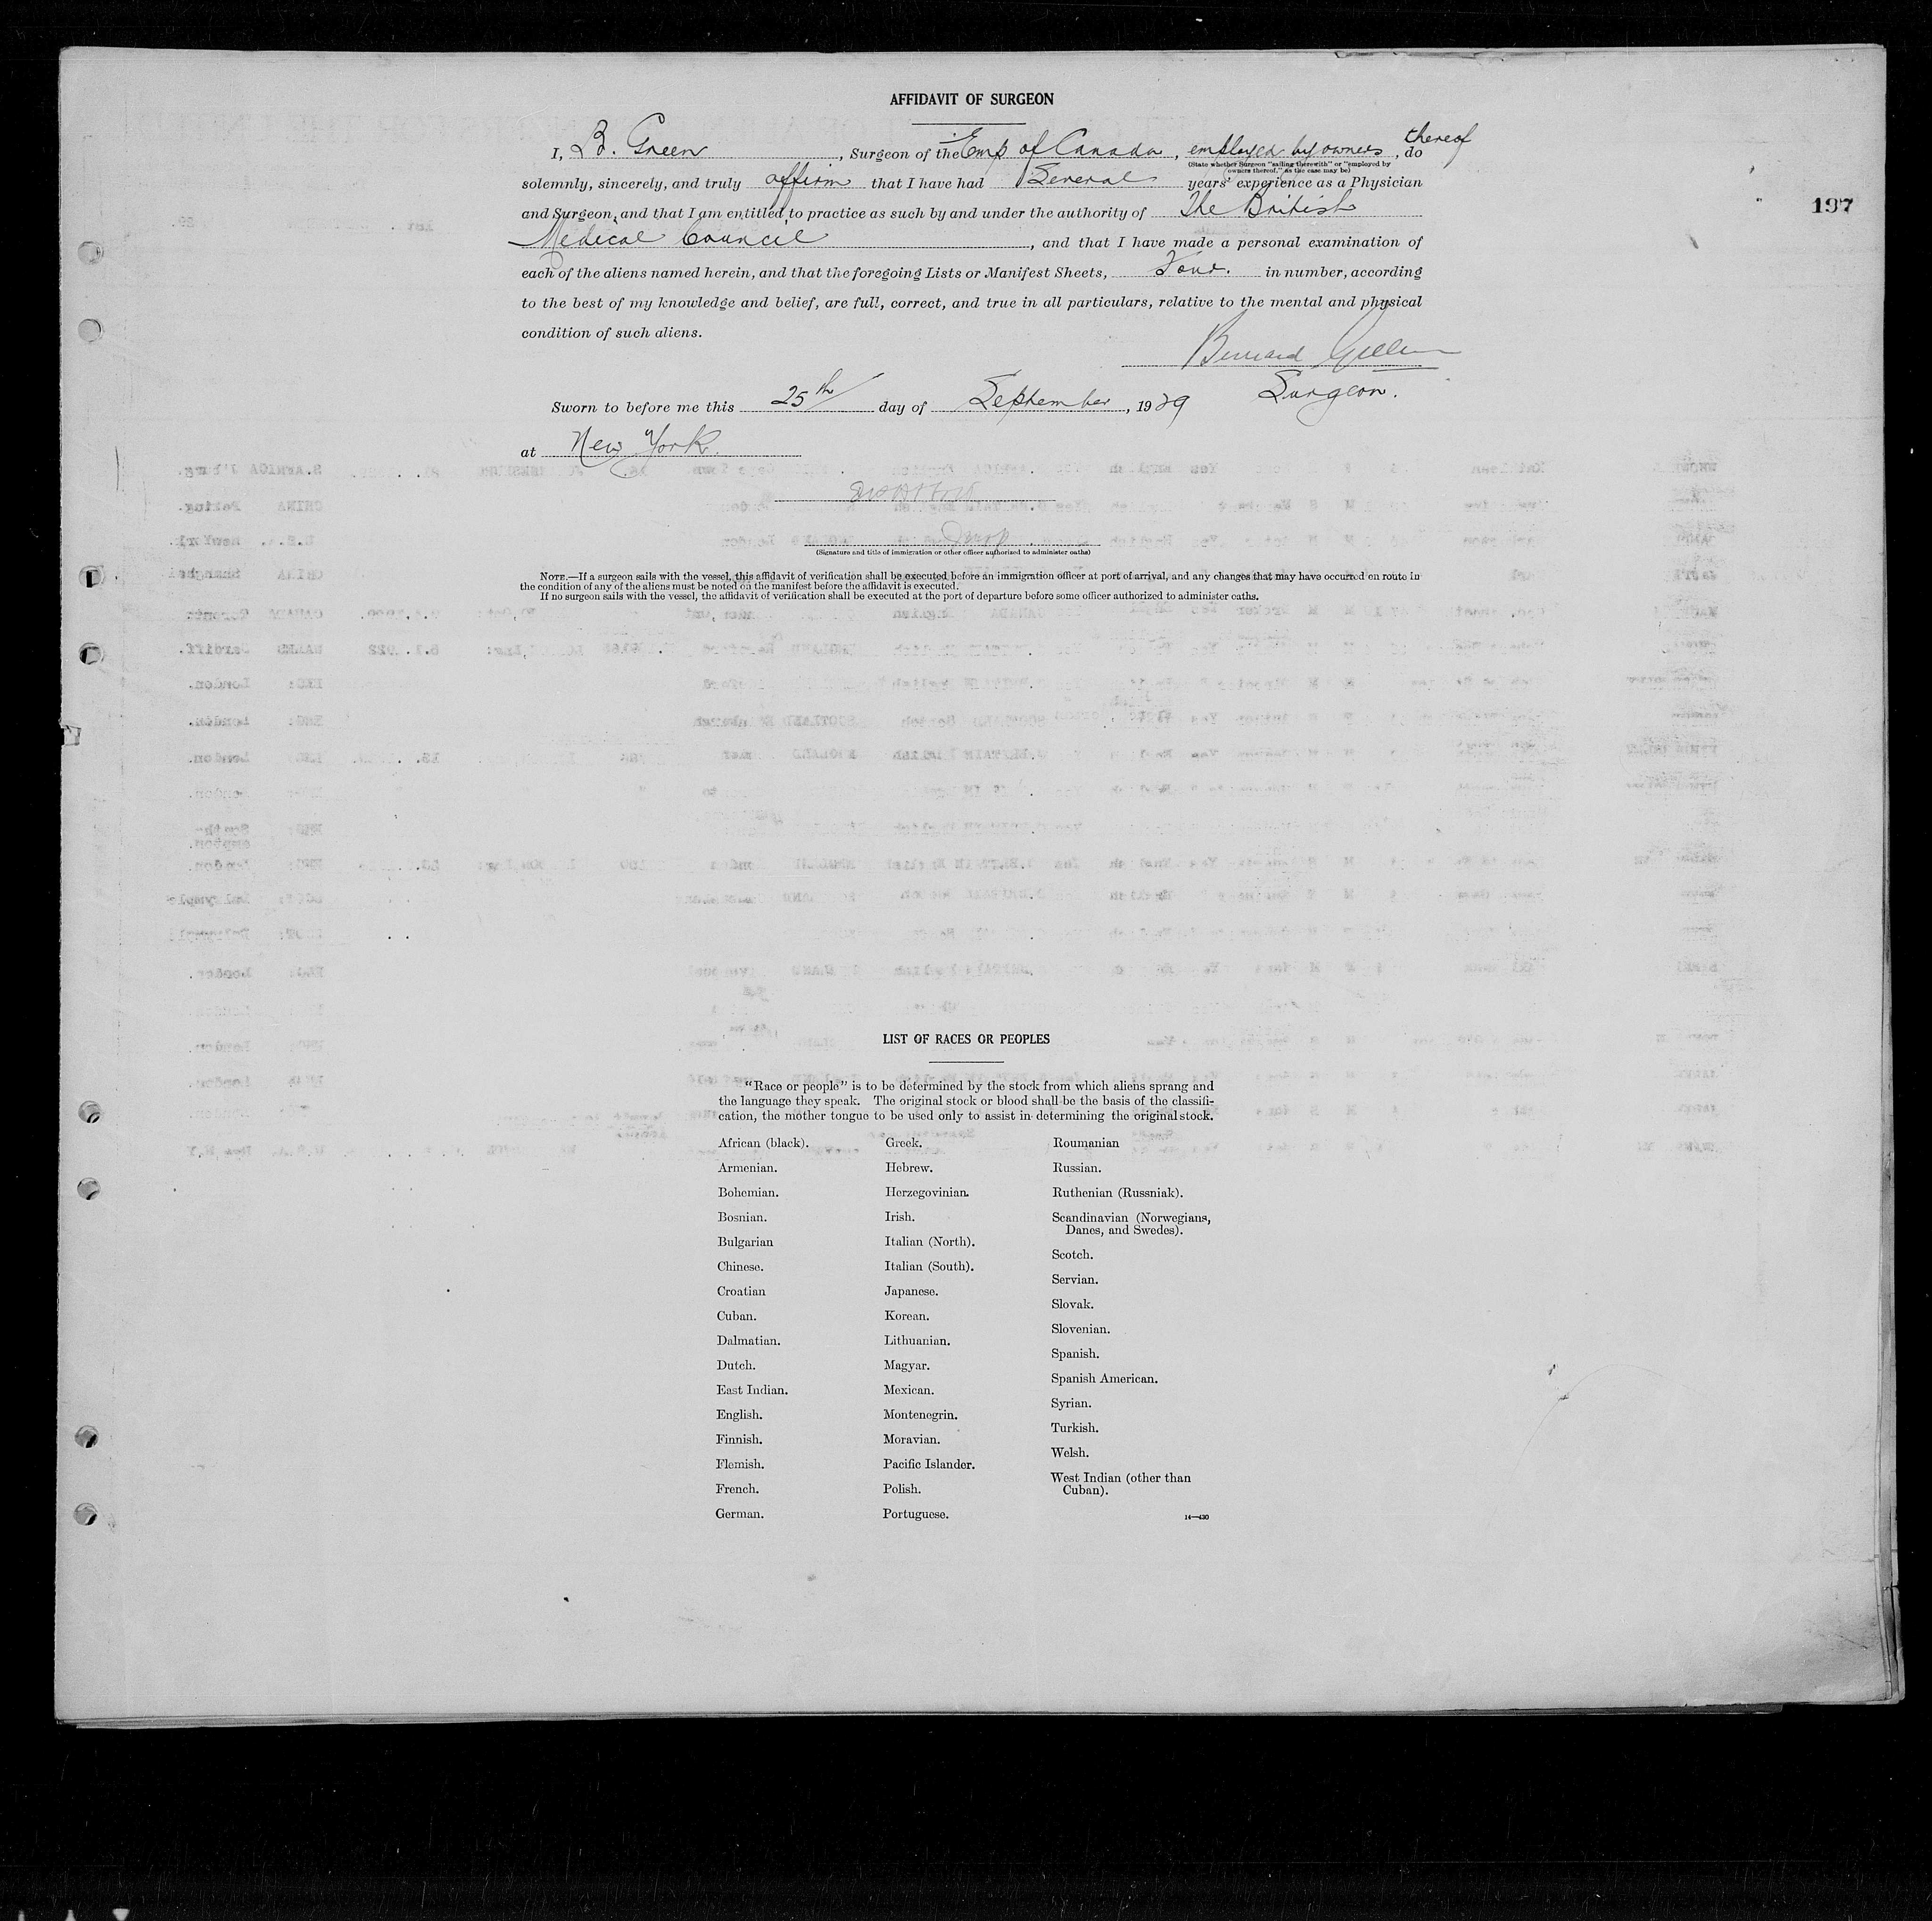 AFFIDAVIT OF SURGEON
I, B. Green, Surgeon of the Emp of Canada, employed by owners thereof, do
(State whether Surgeon "sailing therewith" or "employed by
owners thereof," as the case may be)
solemnly, sincerely, and truly affirm that I have had Several years' experience as a Physician
and Surgeon, and that I am entitled to practice as such by and under the authority of The British
197
Medical Council, and that I have made a personal examination of
each of the aliens named herein, and that the foregoing Lists or Manifest Sheets, Four. in number, according
to the best of my knowledge and belief, are full, correct, and true in all particulars, relative to the mental and physical
condition of such aliens.
Bernard Green
Surgeon.
Sworn to before me this 25th day of September, 1929
at New York.
(Signature and title of immigration or other officer authorized to administer oaths)
NOTE.—If a surgeon sails with the vessel, this affidavit of verification shall be executed before an immigration officer at port of arrival, and any changes that may have occurred en route in
the condition of any of the aliens must be noted on the manifest before the affidavit is executed.
If no surgeon sails with the vessel, the affidavit of verification shall be executed at the port of departure before some officer authorized to administer oaths.
LIST OF RACES OR PEOPLES
"Race or people" is to be determined by the stock from which aliens sprang and
the language they speak. The original stock or blood shall be the basis of the classifi-
cation, the mother tongue to be used only to assist in determining the original stock.
African (black).
Armenian.
Bohemian.
Bosnian.
Bulgarian
Chinese.
Croatian
Cuban.
Dalmatian.
Dutch.
East Indian.
English.
Finnish.
Flemish.
French.
German.
Greek.
Hebrew.
Herzegovinian.
Irish.
Italian (North).
Italian (South).
Japanese.
Korean.
Lithuanian.
Magyar.
Mexican.
Montenegrin.
Moravian.
Pacific Islander.
Polish.
Portuguese.
Roumanian
Russian.
Ruthenian (Russniak).
Scandinavian (Norwegians,
Danes, and Swedes).
Scotch.
Servian.
Slovak.
Slovenian.
Spanish.
Spanish American.
Syrian.
Turkish.
Welsh.
West Indian (other than
Cuban).
14—430